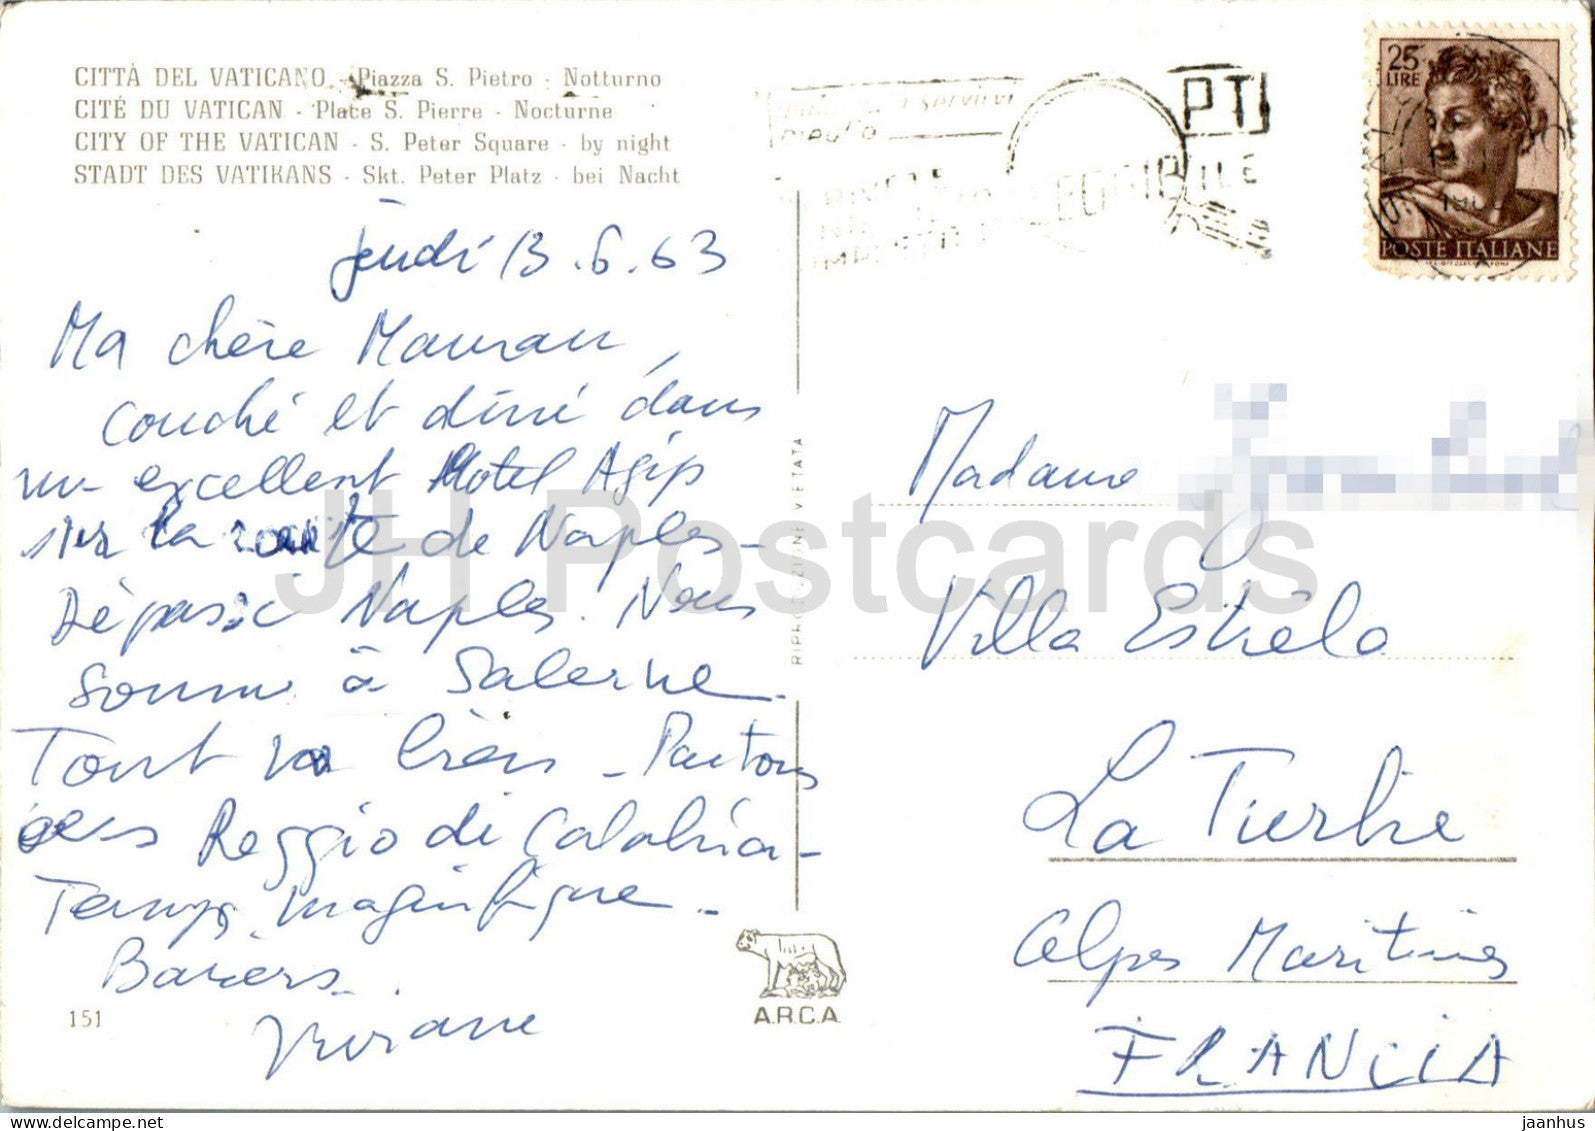 CITTÀ DEL VATICANO - Piazza S. Pietro - Notturno
CITÉ DU VATICAN - Place S. Pierre - Nocturne
CITY OF THE VATICAN - S. Peter Square - by night
STADT DES VATIKANS - Skt. Peter Platz - bei Nacht
jeudi 13.6.63
Ma chère Maman,
couché et diné dans
un excellent Motel Agip
sur la route de Naples -
Dépassé Naples. Nous
sommes à Salerne.
Tout va bien - Partons
vers Reggio di Calabria -
Temps magnifique -
Baisers - .
Viviane
151
RIPRODUZIONE VIETATA
A.R.C.A.
PTI
25
LIRE
POSTE ITALIANE
Madame
Villa Estrèla
La Turbie
Alpes Maritimes
FRANCIA
JH Postcards
jaanhus @ delcampe.net